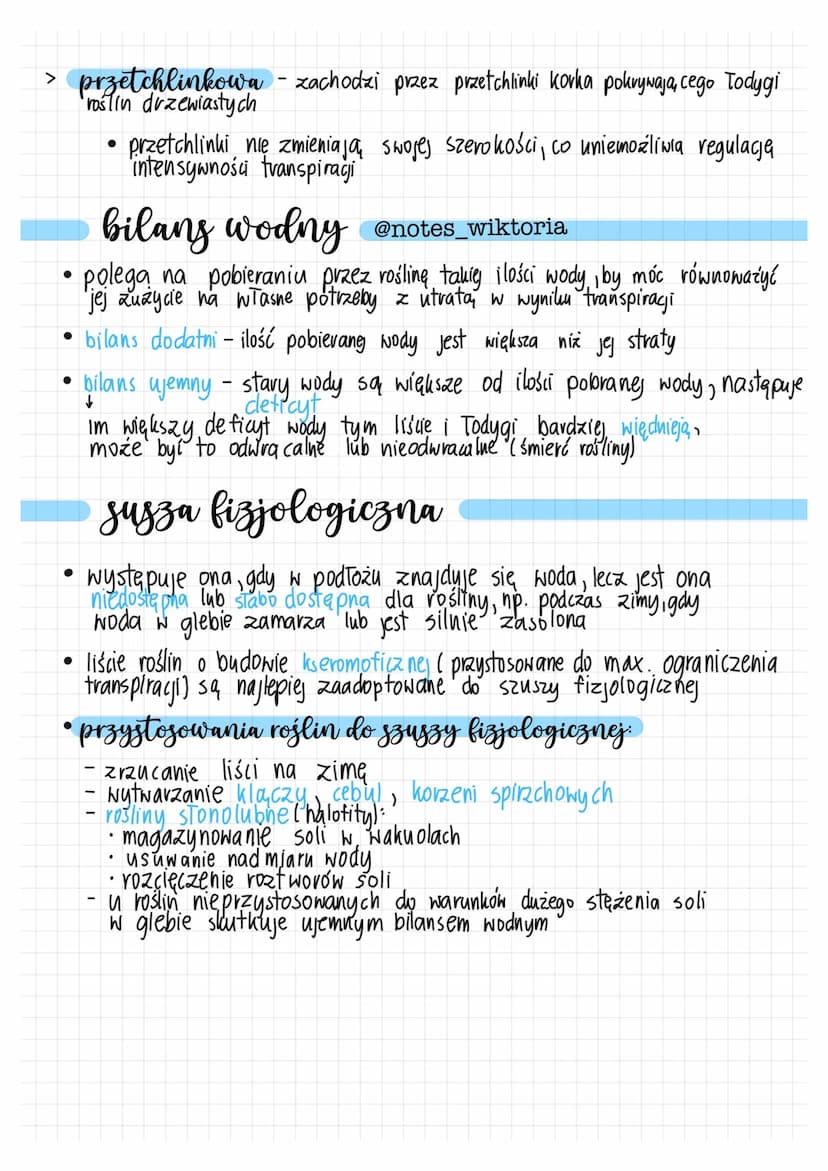 > przetchlinkowa - zachodzi przez przetchlinki korka pokrywającego łodygi
roślin drzewiastych
• przetchlinki nie zmieniają swojej szerokości, co uniemożliwia regulację
intensywności transpiracji
bilans wodny @notes_wiktoria
• polega na pobieraniu przez roślinę takiej ilości wody, by móc równoważyć
jej zużycie na własne potrzeby z utratą w wyniku transpiracji
• bilans dodatni - ilość pobieranej wody jest większa niż jej straty
• bilans ujemny - straty wody są większe od ilości pobranej wody, następuje
↓ deficyt
im większy deficyt wody tym liście i łodygi bardziej więdnieją,
może być to odwracalne lub nieodwracalne (śmierć rośliny)
susza fizjologiczna
• występuje ona, gdy w podłożu znajduje się woda, lecz jest ona
niedostępna lub słabo dostępna dla rośliny, np. podczas zimy, gdy
woda w glebie zamarza lub jest silnie zasolona
• liście roślin o budowie kseromoficznej (przystosowane do max. ograniczenia
transpiracji) są najlepiej zaadoptowane do szuszy fizjologicznej
• przystosowania roślin do szuszy fizjologicznej:
- zrzucanie liści na zimę
- wytwarzanie kłączy, cebul, korzeni spirzchowych
- rośliny słonolubne (halofity):
· magazynowanie soli w wakuolach
· usuwanie nadmiaru wody
· rozcięczenie roztworów soli
- u roślin nieprzystosowanych do warunków dużego stężenia soli
w glebie skutkuje ujemnym bilansem wodnym